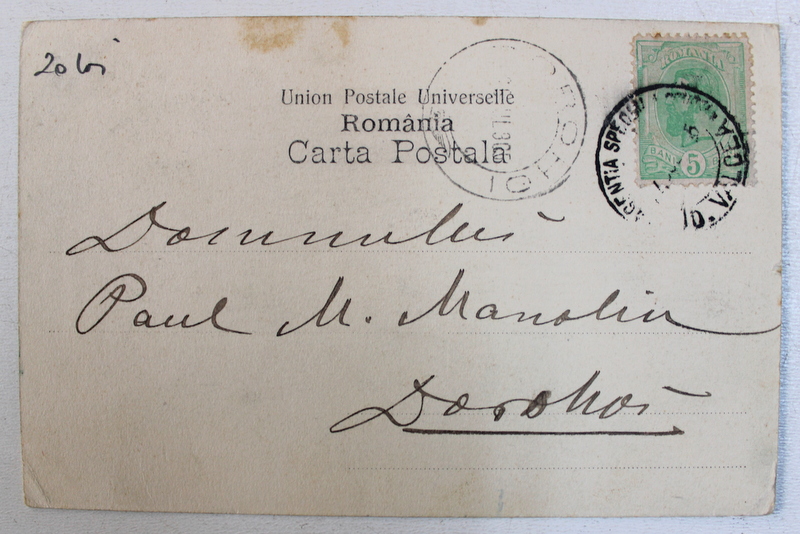 20 lei
ROMANIA
BANI 5
Union Postale Universelle
România
Carta Postala
DOROHOI
AGENTIA SPECIALA
VALCEA
Domnului
Paul M. Manoliu
Dorohoi